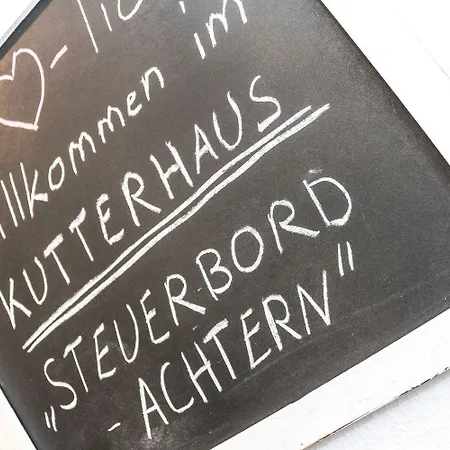 ♡-lich
willkommen im
KUTTERHAUS
„STEUERBORD
-ACHTERN"